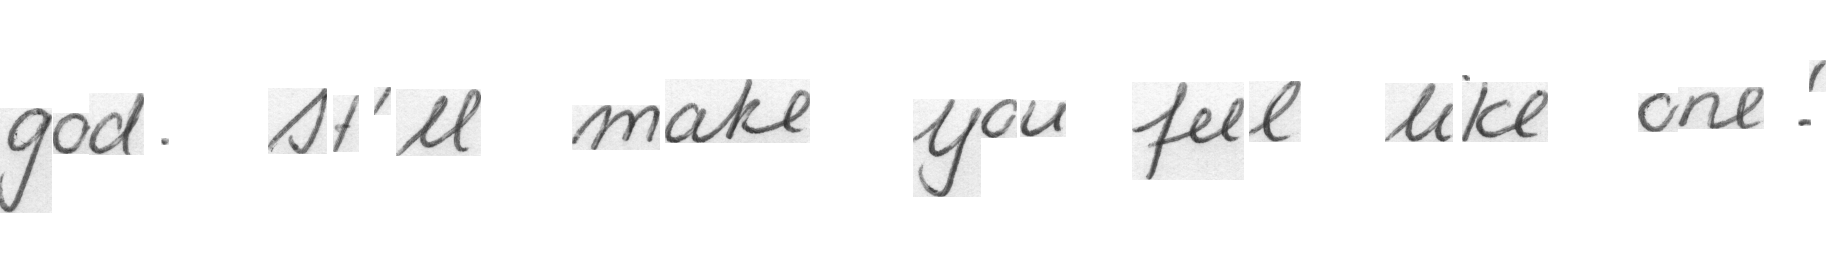 god. It'll make you feel like one!